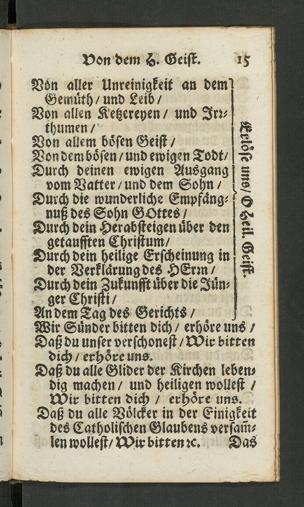 Von dem H. Geist. 15
Von aller Unreinigkeit an dem
Gemüth / und Leib /
Von allen Ketzereyen / und Irr-
thumen /
Von allem bösen Geist /
Von dem bösen / und ewigen Todt /
Durch deinen ewigen Ausgang
vom Vatter / und dem Sohn /
Durch die wunderliche Empfäng-
nuß des Sohn GOttes /
Durch dein Herabsteigen über den
getaufften Christum /
Durch dein heilige Erscheinung in
der Verklärung des HErrn /
Durch dein Zukunfft über die Jün-
ger Christi /
An dem Tag des Gerichts /
Erlöse uns / O Heil. Geist.
Wir Sünder bitten dich / erhöre uns /
Daß du unser verschonest / Wir bitten
dich / erhöre uns.
Daß du alle Glider der Kirchen leben-
dig machen / und heiligen wollest /
Wir bitten dich / erhöre uns.
Daß du alle Völcker in der Einigkeit
des Catholischen Glaubens versam̃-
len wollest / Wir bitten ꝛc. Das